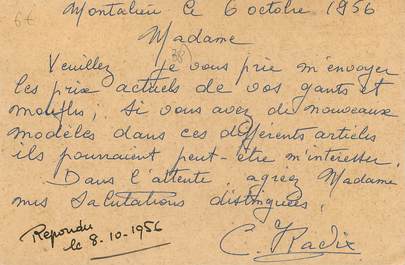 6€
Montalieu le 6 octobre 1956
Madame
Veuillez je vous prie m'envoyer
les prix actuels de vos gants et
moufles, si vous avez de nouveaux
modèles dans ces différents articles
ils pourraient peut-être m'intéresser.
Dans l'attente agréez Madame
mes salutations distinguées.
Répondu
le 8-10-1956
C. Radix